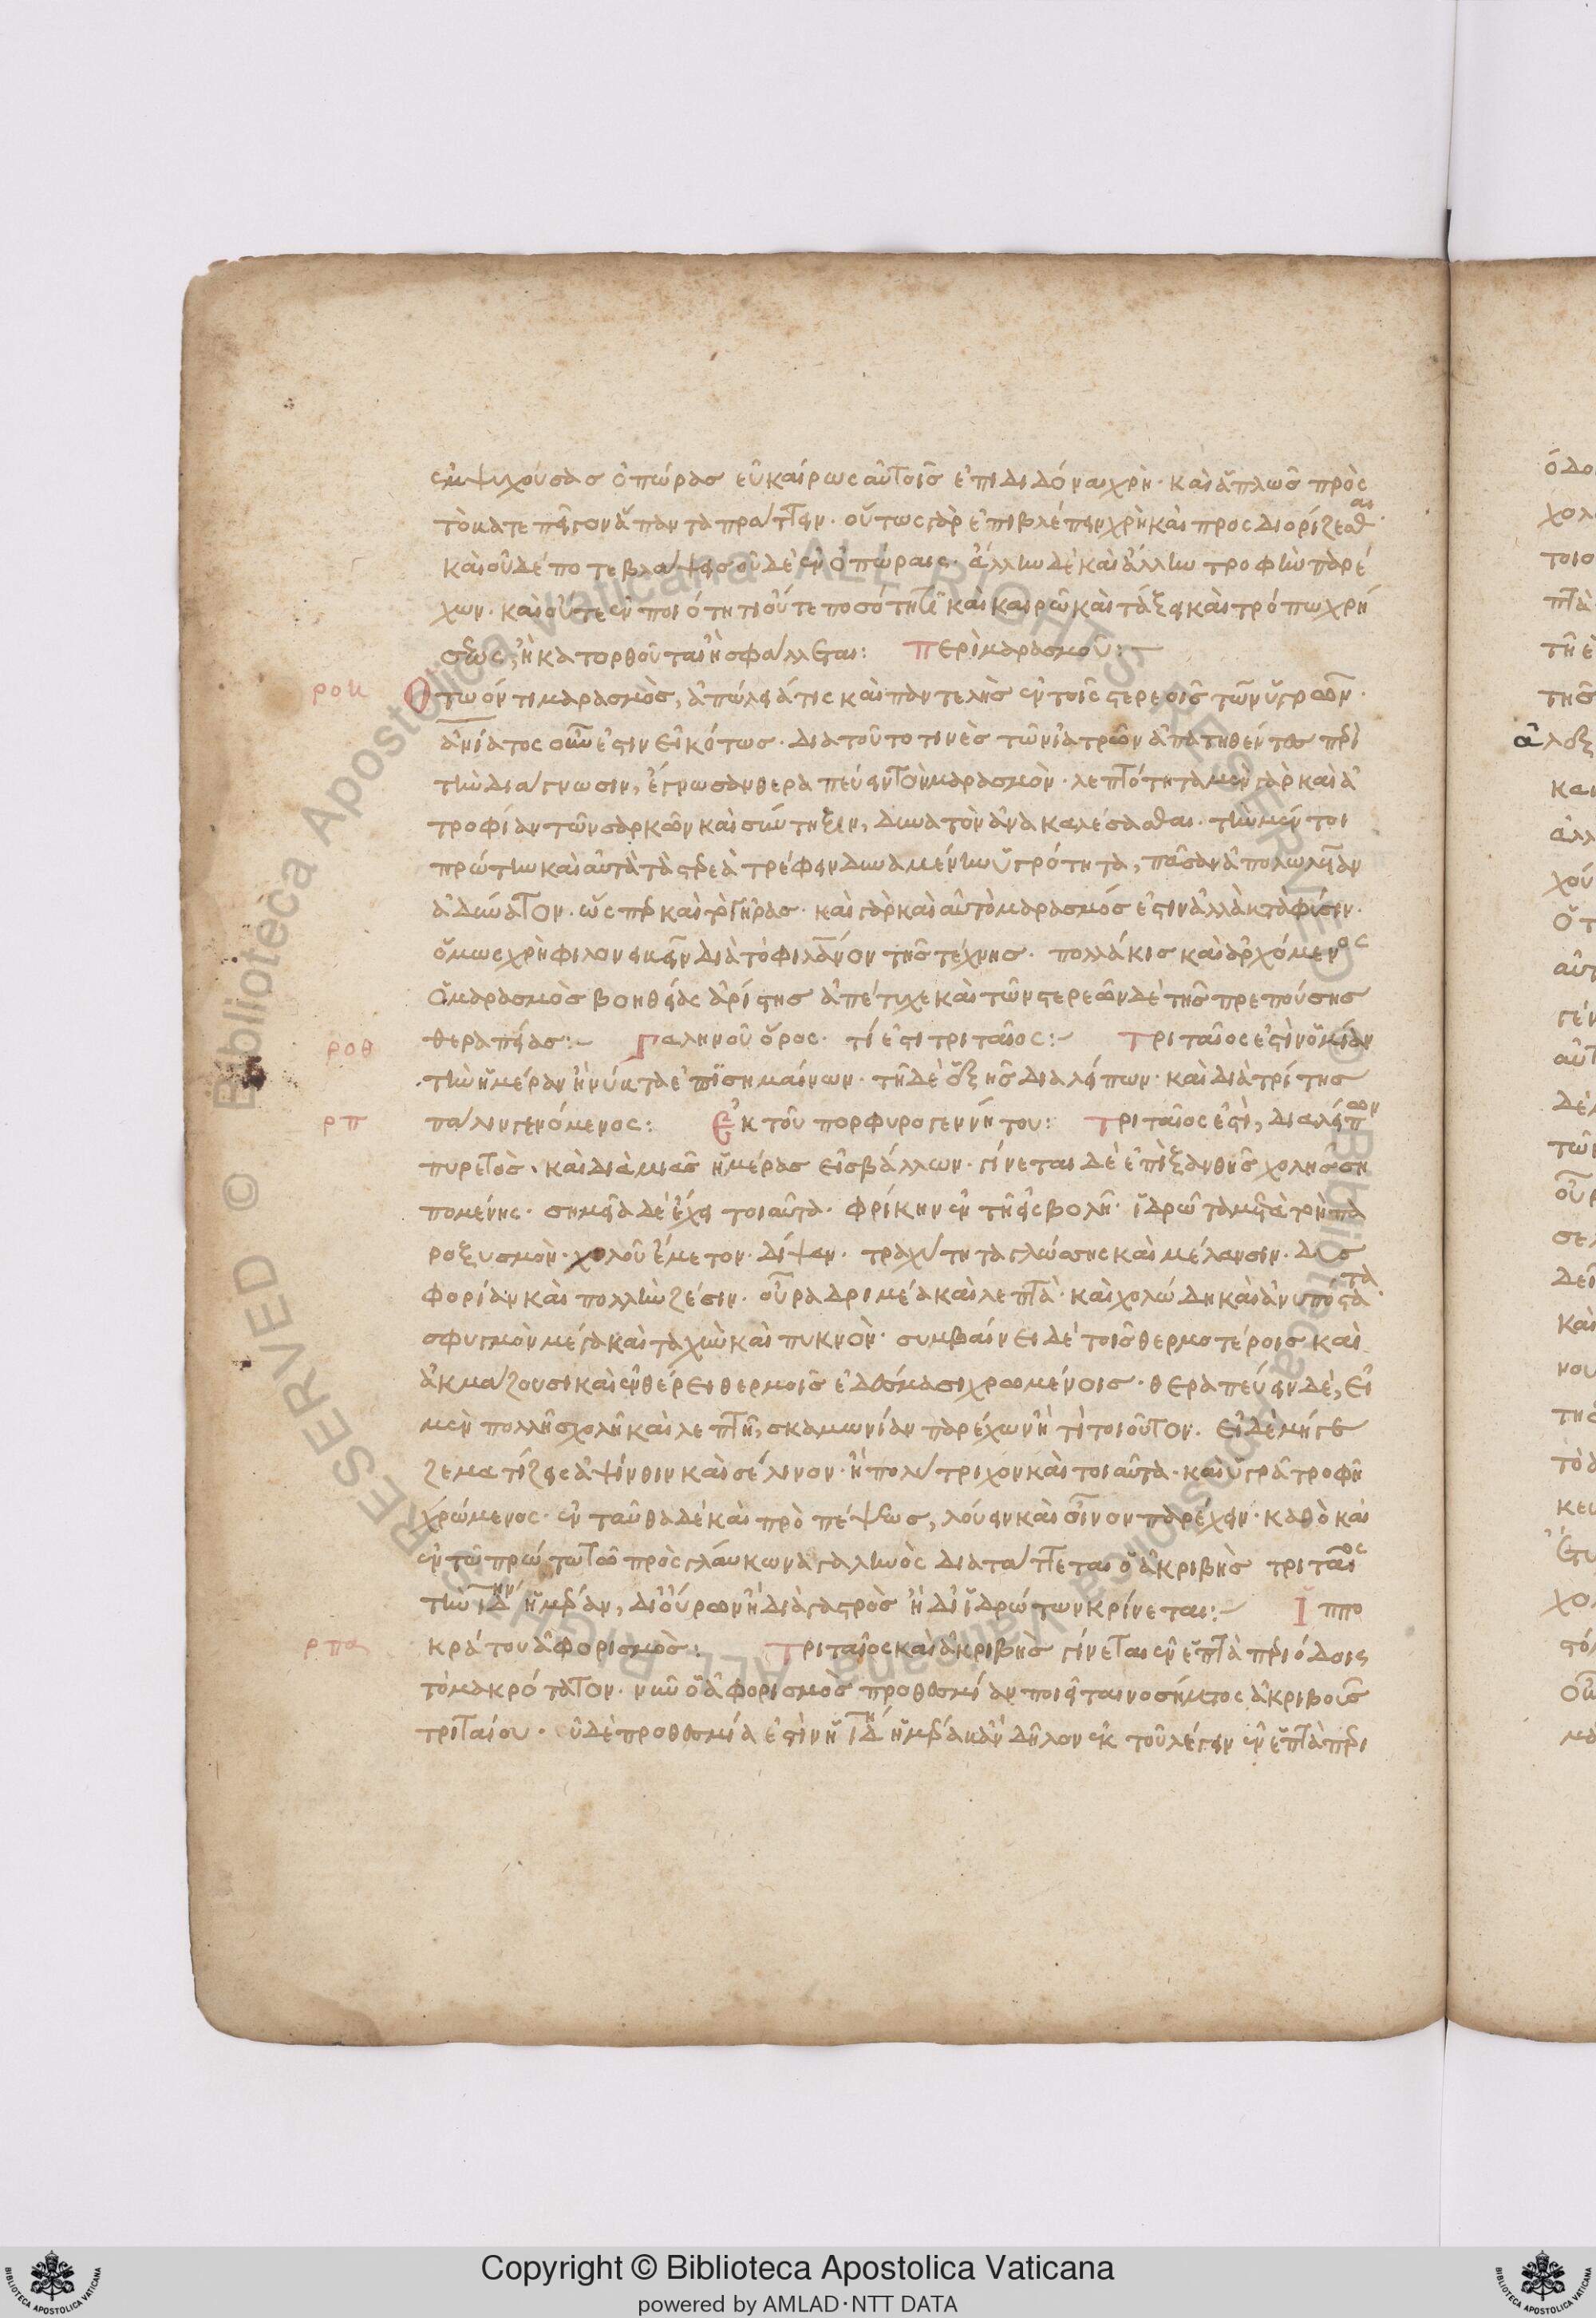 ἐμψυχούσας ὀπώρας εὐκαίρως αὐτοῖς ἐπιδιδόναι χρή· καὶ ἁπλῶς πρὸς
τὸ κατεπεῖγον ἅπαντα πράττειν· οὕτως γὰρ ἐπιβλέπειν χρὴ καὶ προσδιορίζεσθαι·
καὶ οὐδέποτε βλάψεις οὐδὲ ἐν ὀπώραις· ἄλλην δὲ καὶ ἄλλην τροφὴν παρέ
χων· καὶ οὔτε ἐν ποιότητι οὔτε ποσότητι καὶ καιρῶ καὶ τάξει καὶ τρόπω χρή
σεως, ἢ κατορθοῦται ἢ σφάλλεται: Περὶ μαρασμοῦ:
ροη Ὄτω ὄντι μαρασμὸς, ἀπώλειά τις καὶ παντελὴς ἐν τοῖς στερεοῖς τῶν ὑγρῶν·
ἀνίατος οὖν ἐστιν εἰκότως· διατοῦτο τινὲς τῶν ἰατρῶν ἀπατηθέντες περὶ
τὴν διάγνωσιν, ἔγνωσαν θεραπεύειν τὸν μαρασμὸν· λεπτότητα μὲν γὰρ καὶ ἀ
τροφίαν τῶν σαρκῶν καὶ σύντηξιν, δυνατὸν ἀνακαλέσασθαι· τὴν μέντοι
πρώτην καὶ αὐτὰ τὰ στερεὰ τρέφειν δυναμένην ὑγρότητα, πᾶσαν ἀπολωλυῖαν
ἀδύνατον· ὥσπερ καὶ τὸ γῆρας· καὶ γὰρ καὶ αὐτὸ μαρασμός ἐστιν ἀλλὰ κατὰ φύσιν·
ὅμως χρὴ φιλονεικεῖν διὰ τὸ φιλάνθρωπον τῆς τέχνης· πολλάκις καὶ ἀρχόμενος
ὁ μαρασμὸς βοηθείας ἀρίστης ἀπέτυχε καὶ τῶν στερεῶν δὲ τῆς πρεπούσης
ροθ θεραπείας: Γαληνοῦ ὅρος· τί ἐστι τριταῖος: Τριταῖος ἐστὶν ὁ μίαν
τὴν ἡμέραν ἢ νύκτα ἐπισημαίνων· τῇ δὲ ἑξῆς διαλείπων· καὶ διὰ τρίτης
ρπ παλινγενόμενος: Ἐκ τοῦ πορφυρογεννήτου: Τριταῖος ἐστὶ, διαλείπων
πυρετὸς· καὶ διὰ μιᾶς ἡμέρας εἰσβάλλων· γίνεται δὲ ἐπὶ ξανθῆς χολῆς ση
πομένης· σημεῖα δὲ ἔχει τοιαῦτα· φρίκην ἐν τῇ εἰσβολῇ· ἱδρῶτα μετὰ τὸν πα
ροξυσμὸν· χολοῦ ἔμετον· δίψαν· τραχύτητα γλώσσης καὶ μέλανσιν· δυσ
φορίαν καὶ πολλὴν ζέσιν· οὖρα δριμέα καὶ λεπτὰ· καὶ χολώδη καὶ ἀνυπόστατα·
σφυγμὸν μέγα καὶ ταχὺν καὶ πυκνὸν· συμβαίνει δὲ τοῖς θερμοτέροις καὶ
ἀκμάζουσι καὶ ἐν θέρει θερμοῖς ἐδέσμασι χρωμένοις· θεραπεύειν δὲ, εἰ
μὲν πολλῆς χολῆ καὶ λεπτῆ, σκαμωνίαν παρέχων ἤ τι τοιοῦτον· εἰ δὲ μήγε
ζεματίζεις ἀψίνθιν καὶ σέλινον· ἢ πολύτριχον καὶ τοιαῦτα· καὶ ὑγρᾶ τροφῆ
χρώμενος· ἐνταῦθα δὲ καὶ πρὸ πέψεως, λούειν καὶ οἶνον παρέχειν· καθὸ καὶ
ἐν τῶ πρώτω τῶ πρὸς γλάυκωνα γαληνὸς διατάττεται ὁ ἀκριβὴς τριταῖος
τὴν ιδην ἡμέραν, δι οὔρων ἢ διὰ γαστρὸς ἢ δι ἱδρώτων κρίνεται: Ἱππο
ρπα κράτου ἀφορισμὸς: Τριταῖος καὶ ἀκριβὴς γίνεται ἐν ἑπτὰ περιόδοις
τὸ μακρότατον· νῦν ὁ ἀφορισμὸς προθεσμίαν ποιεῖται νοσήματος ἀκριβοῦς
τριταίου· ἡ δὲ προθεσμία ἐστὶν ἡ ιδη ἡμέρα κἂν δῆλον ἐκ τοῦ λέγειν ἐν ἑπτὰ περι
Copyright © Biblioteca Apostolica Vaticana
powered by AMLAD·NTT DATA